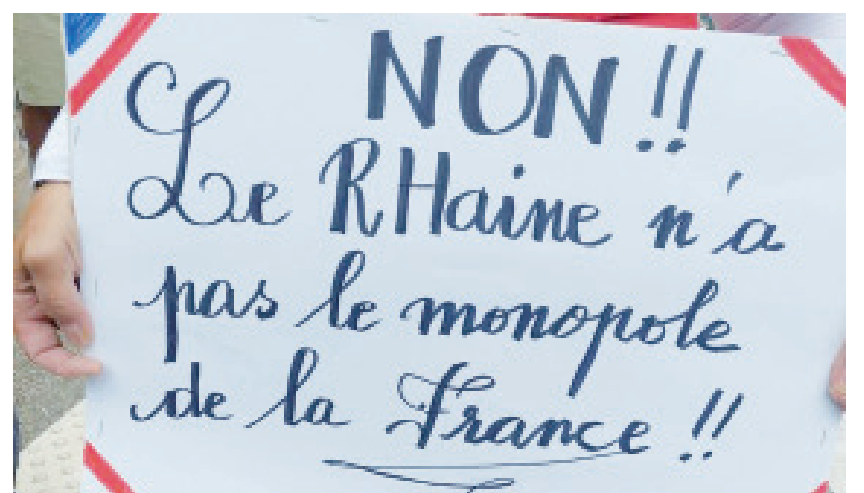 NON !!
Le RHaine n'a
pas le monopole
de la France !!